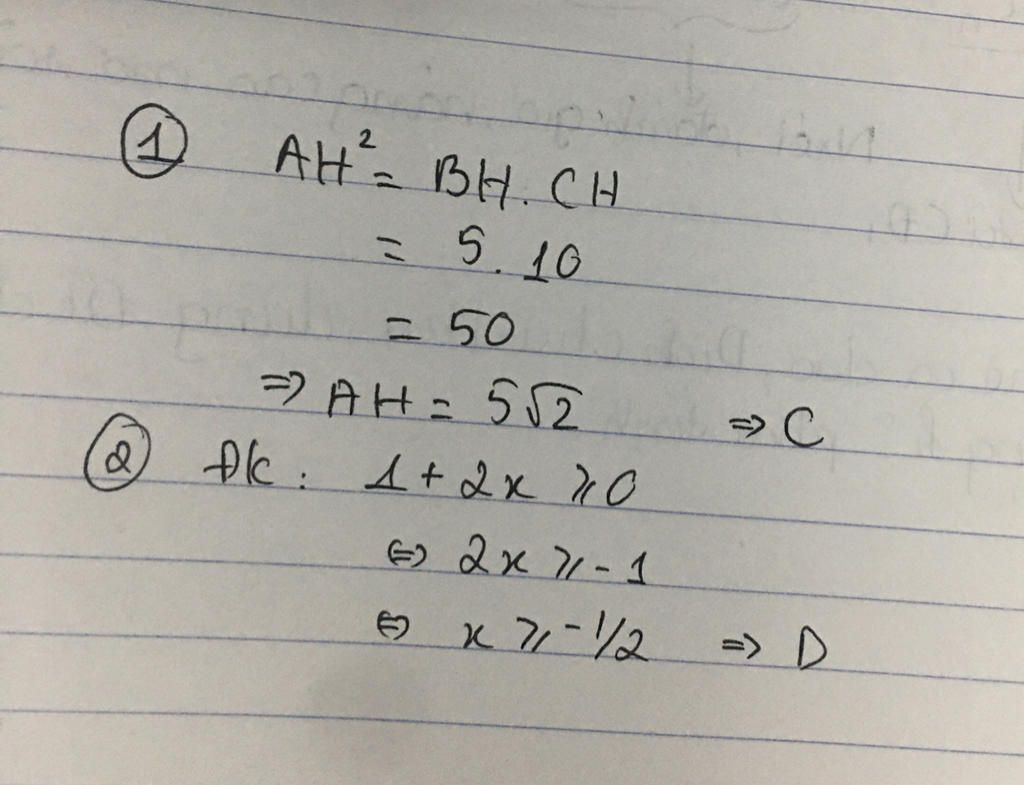 ① AH² = BH. CH
= 5. 10
= 50
=> AH = 5√2 => C
② ĐK: 1 + 2x ≥ 0
<=> 2x ≥ -1
<=> x ≥ -1/2 => D